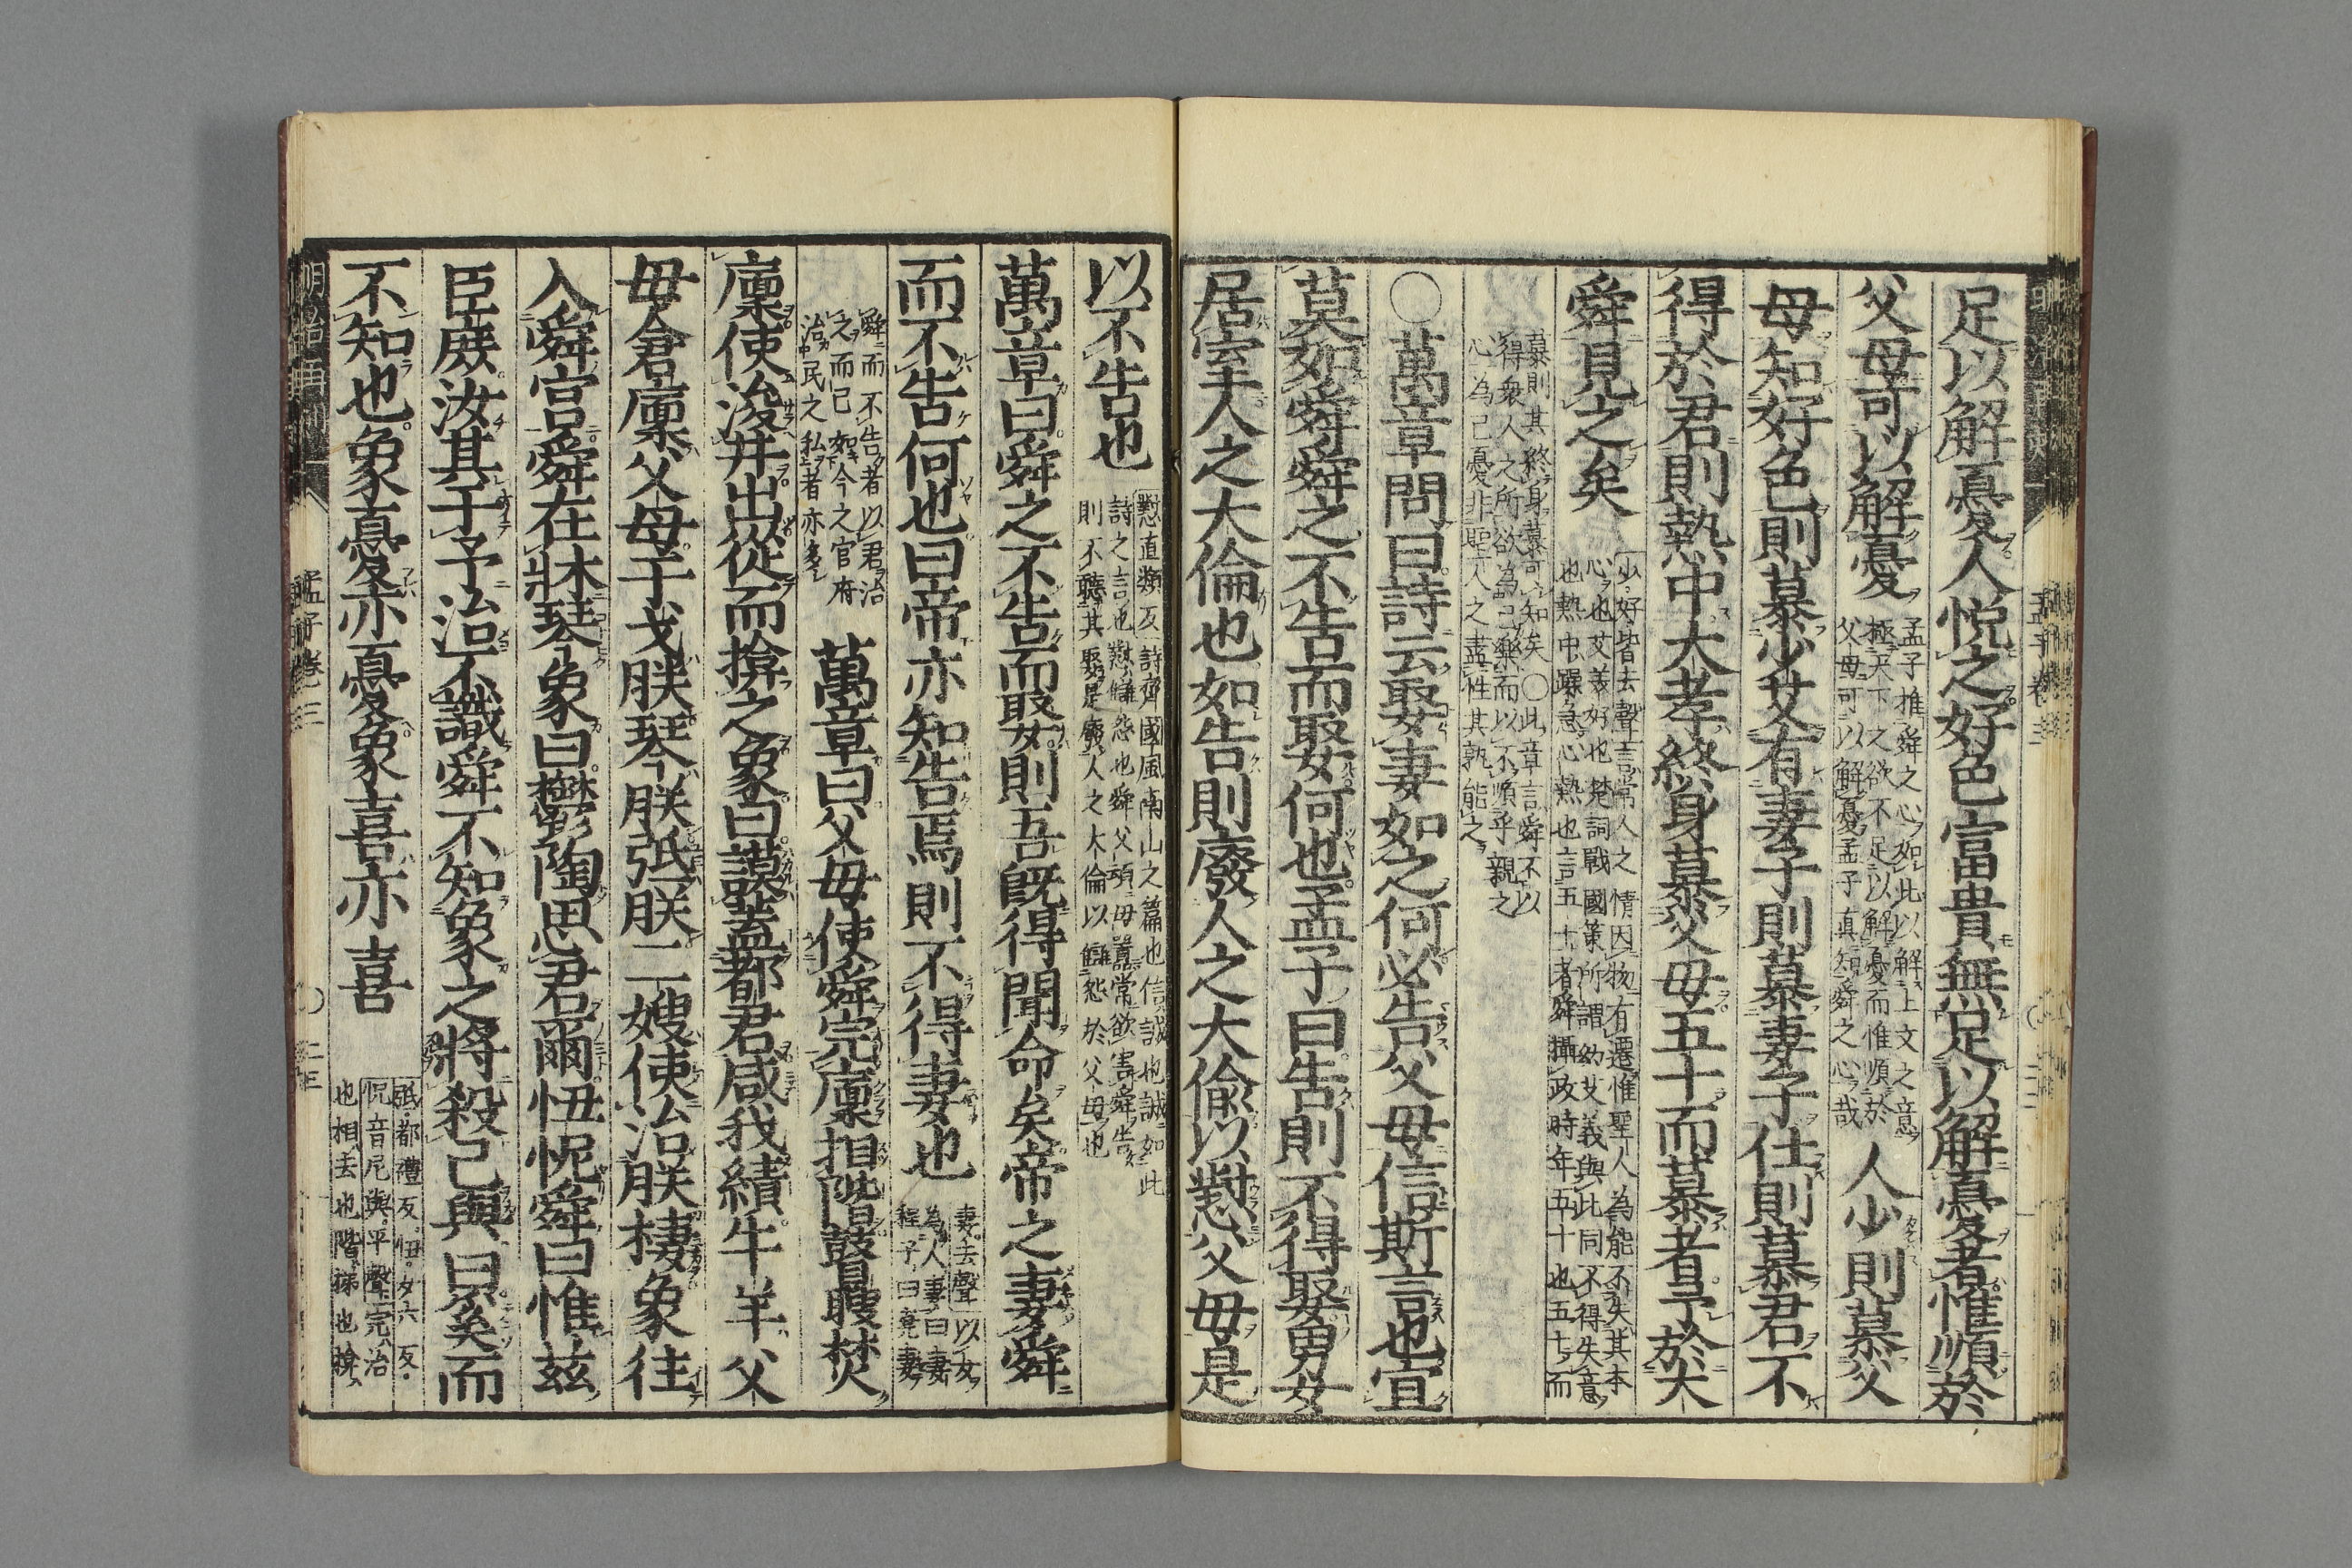 足以解憂人悅之好色富貴無足以解憂者惟順於
父母可以解憂
孟子推舜之心如此以解上文之意
極天下之欲不足以解憂而惟順於
父母可以解憂孟子真知舜之心哉
人少則慕父
母知好色則慕少艾有妻子則慕妻子仕則慕君不
得於君則熱中大孝終身慕父母五十而慕者予於大
舜見之矣
少好皆去聲言常人之情因物有遷惟聖人為能不失其本
心也艾美好也楚詞戰國策所謂幼艾義與此同不得失意
也熱中躁急心熱也言五十者舜攝政時年五十也五十而
慕則其終身慕可知矣〇此章言舜不以
得衆人之所欲為己樂而以不順乎親之
心為己憂非聖人之盡性其孰能之
〇萬章問曰詩云娶妻如之何必告父母信斯言也宜
莫如舜舜之不告而娶何也孟子曰告則不得娶男女
居室人之大倫也如告則廢人之大倫以懟父母是
以不告也
懟直類反詩齊國風南山之篇也信誠也誠如此
詩之言也懟讎怨也舜父頑母嚚常欲害舜告
則不聽其娶是廢人之大倫以讎怨於父母也
萬章曰舜之不告而娶則吾既得聞命矣帝之妻舜
而不告何也曰帝亦知告焉則不得妻也
妻去聲以女
為人妻曰妻
程子曰堯妻
舜而不告者以君治
之而已如今之官府
治民之私者亦多
萬章曰父母使舜完廩捐階瞽瞍焚
廩使浚井出從而揜之象曰謨蓋都君咸我績牛羊父
母倉廩父母干戈朕琴朕弤朕二嫂使治朕棲象往
入舜宮舜在牀琴象曰鬱陶思君爾忸怩舜曰惟茲
臣庶汝其于予治不識舜不知象之將殺己與曰奚而
不知也象憂亦憂象喜亦喜
弤都禮反忸女六反
怩音尼與平聲完治
也捐去也階梯也揜
孟子卷三